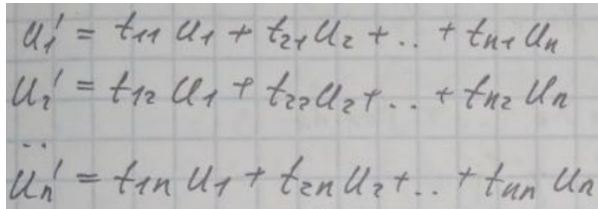 u₁' = t₁₁ u₁ + t₂₁ u₂ + .. + tₙ₁ uₙ
u₂' = t₁₂ u₁ + t₂₂ u₂ + .. + tₙ₂ uₙ
..
uₙ' = t₁ₙ u₁ + t₂ₙ u₂ + .. + tₙₙ uₙ